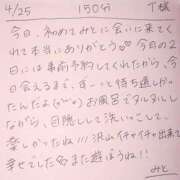 4/25 150分 T様
今日、初めてみとに会いに来てく
れて本当にありがとう♡♡ 今日の2
日には事前予約してくれたから、今
日会えるまで、ずーっと待ち遠しかっ
たんだよ(>ω<)お風呂でヌルヌルし
ながら、目隠しして洗いっこして、
楽しかったね!!!沢山イチャイチャ出来て
幸せでした名また遊ぼうね!!
みと